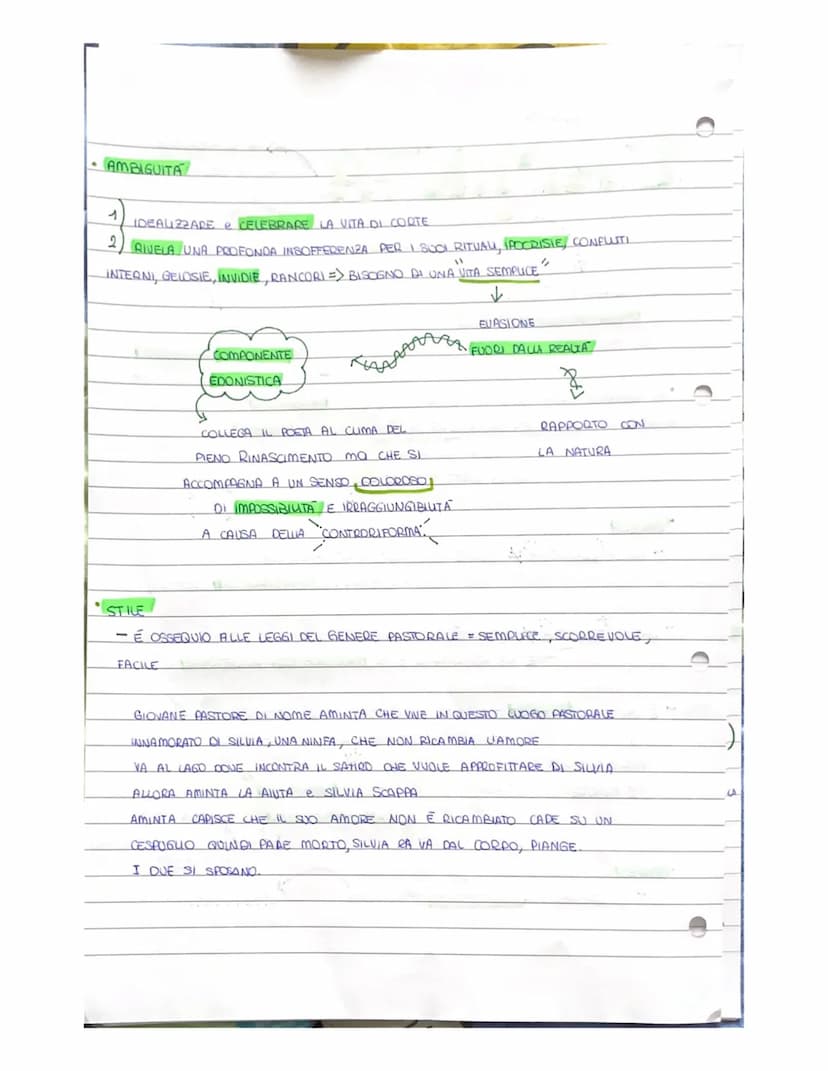 • AMBIGUITÀ
1) IDEALIZZARE e CELEBRARE LA VITA DI CORTE
2) RIVELA UNA PROFONDA INSOFFERENZA PER I SUOI RITUALI, IPOCRISIE, CONFLITTI
INTERNI, GELOSIE, INVIDIE, RANCORI => BISOGNO DI UNA "VITA SEMPLICE"
EVASIONE
FUORI DALLA REALTÀ
COMPONENTE
EDONISTICA
COLLEGA IL POETA AL CLIMA DEL
PIENO RINASCIMENTO MA CHE SI
ACCOMPAGNA A UN SENSO DOLOROSO
DI IMPOSSIBILITÀ E IRRAGGIUNGIBILITÀ
A CAUSA DELLA CONTRORIFORMA.
RAPPORTO CON
LA NATURA
• STILE
- È OSSEQUIO ALLE LEGGI DEL GENERE PASTORALE = SEMPLICE, SCORREVOLE,
FACILE
GIOVANE PASTORE DI NOME AMINTA CHE VIVE IN QUESTO LUOGO PASTORALE
INNAMORATO DI SILVIA, UNA NINFA, CHE NON RICAMBIA L'AMORE
VA AL LAGO DOVE INCONTRA IL SATIRO CHE VUOLE APPROFITTARE DI SILVIA
ALLORA AMINTA LA AIUTA e SILVIA SCAPPA
AMINTA CAPISCE CHE IL SUO AMORE NON È RICAMBIATO CADE SU UN
CESPUGLIO QUINDI PARE MORTO, SILVIA VA DAL CORPO, PIANGE.
I DUE SI SPOSANO.